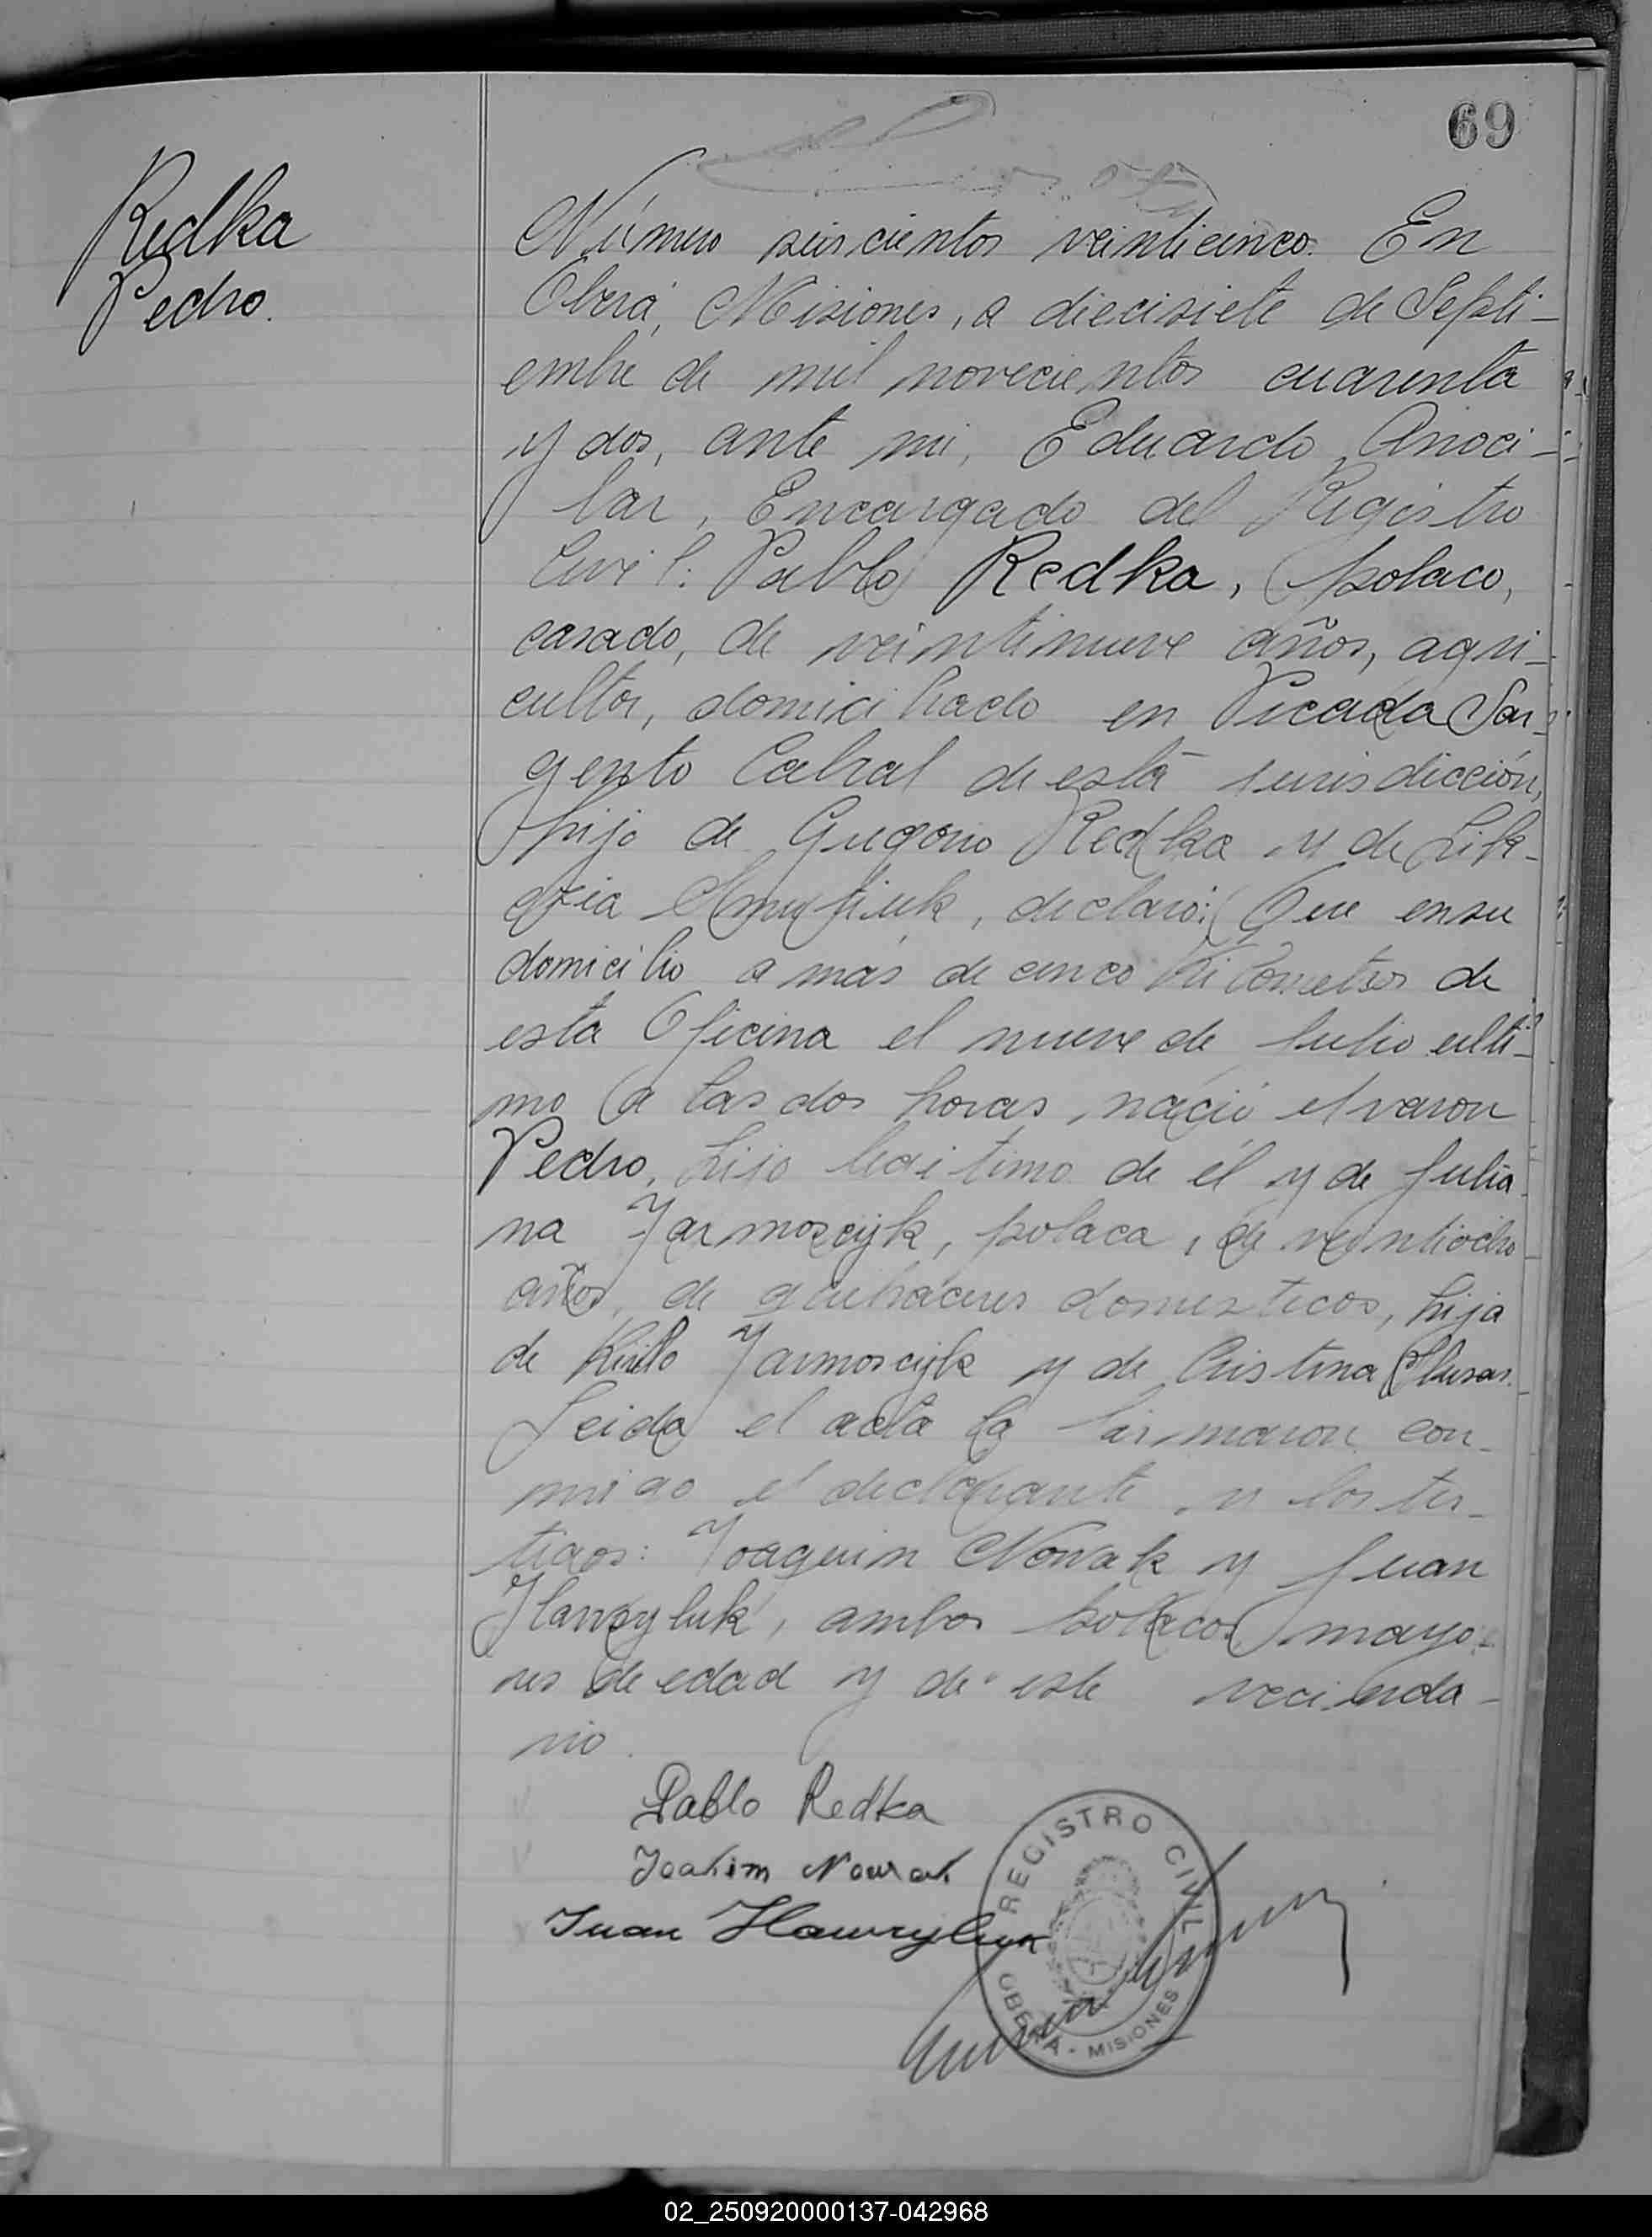 69
Redka
Pedro.
Número seiscientos veinticinco. En
Oberá, Misiones, a diecisiete de Septi-
embre de mil novecientos cuarenta
y dos, ante mi, Eduardo Anoci-
bar, Encargado del Registro
Civil: Pablo Redka, polaco,
casado, de veintinueve años, agri-
cultor, domiciliado en Picada Sar-
gento Cabral de esta jurisdicción,
hijo de Gregorio Redka y de
declaró: Que en su
domicilio a más de cinco kilometros de
esta Oficina el nueve de Julio ulti-
mo a las dos horas, nació el varon
Pedro, hijo legitimo de él y de Julia
na Jarmoscyk, polaca, de veintiocho
años, de quehaceres domesticos, hija
de Kirilo Jarmoscyk y de Cristina
Leida el acta la firmaron con-
migo el declarante y los tes-
tigos: Joaquin Nowak y Juan
Hawryluk, ambos polacos, mayo-
res de edad y de este vecinda-
rio.
Pablo Redka
Joakim Nowak
Juan Hawryluk
REGISTRO CIVIL
OBERA - MISIONES
02_250920000137-042968